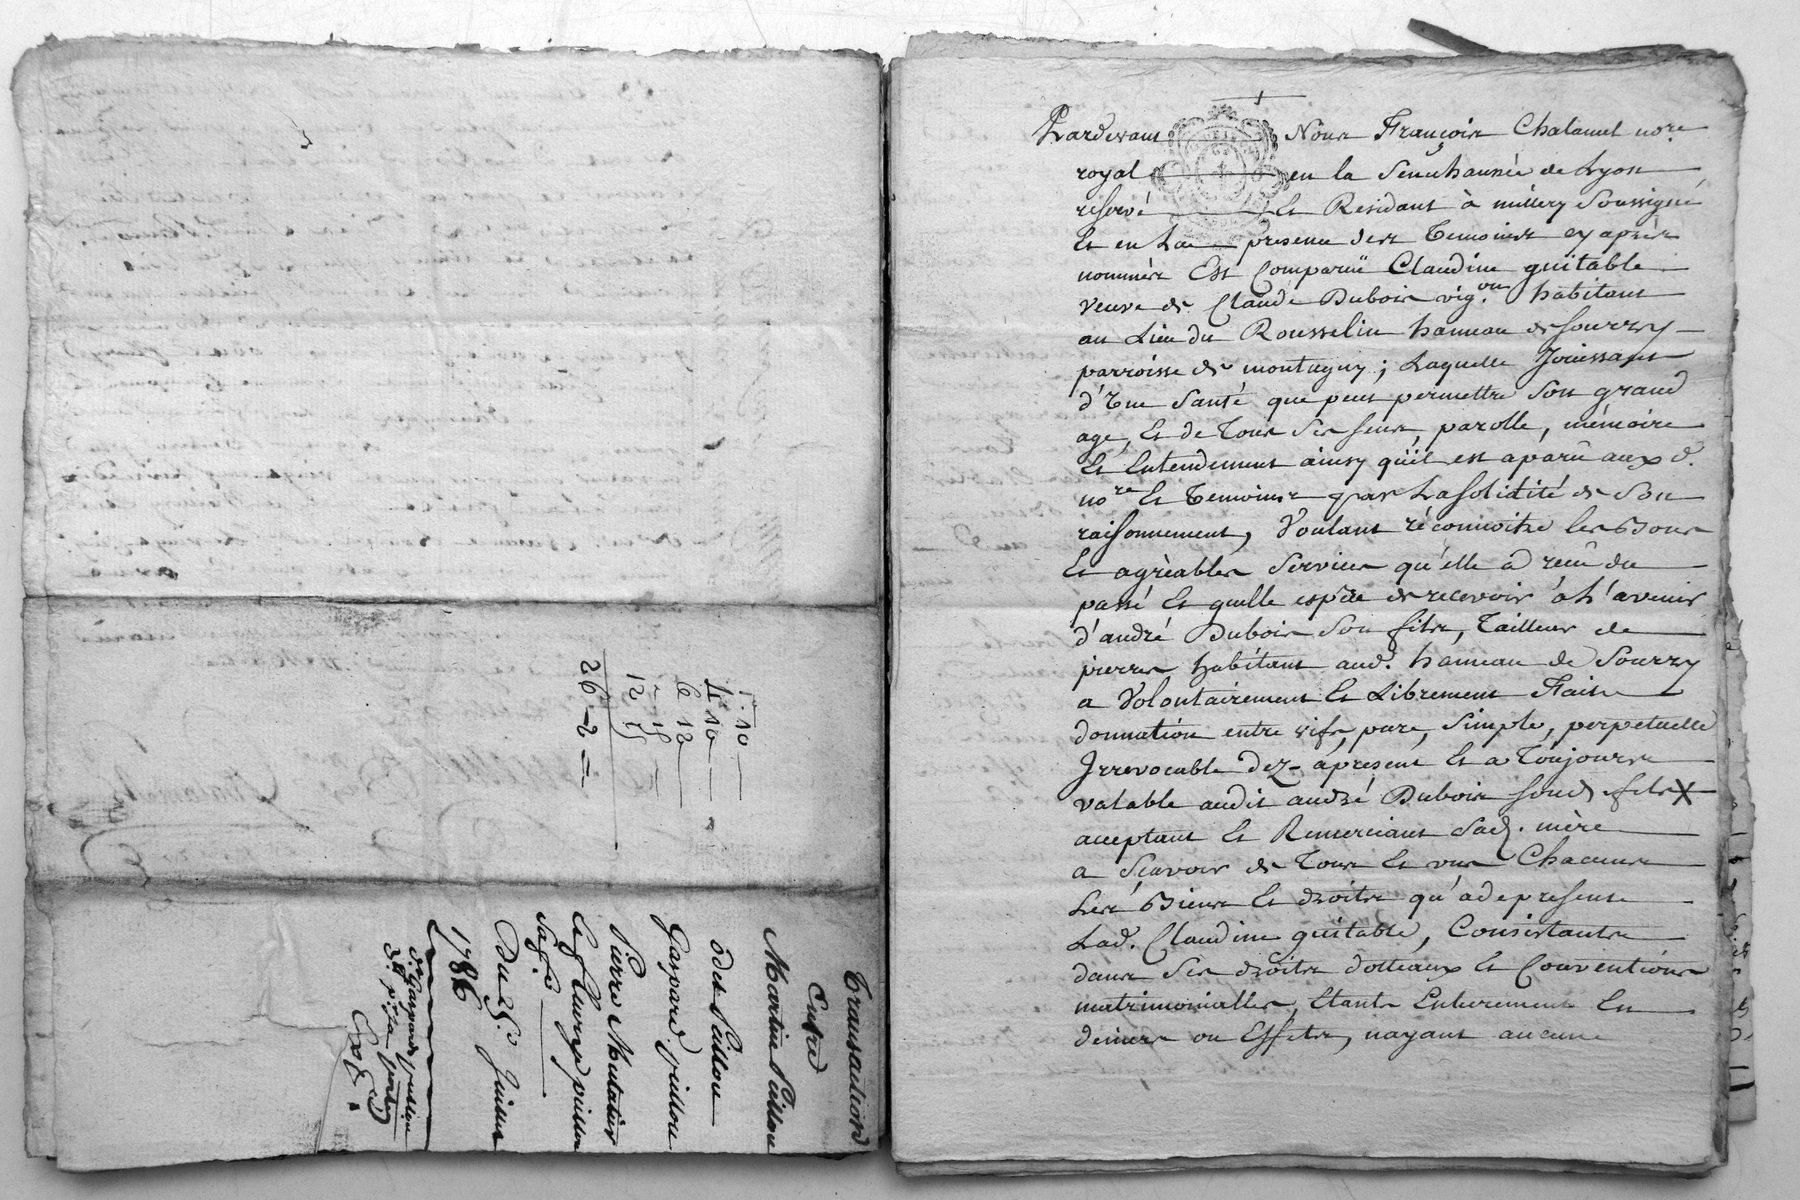 Transaction
Entre
Martin Pailloux
Gaspard
Pierre Mutatier
Sa fe
Du 25e Juillet
1786
5·10
4·10
6 12
12 15
26-2
Pardevant Nous François Chalamel nore
royal en la Senechaussée de Lyon
reservé Et Residant à millery Soussigné
Et en La presence des Temoins cy après
nommés Est Comparuë Claudine guitable
veuve de Claude Dubois vig.on habitant
au Lieu du Rousselin hameau de Sourzy
parroisse de montagny ; Laquelle Jouissant
d'Une Santé que peut permettre Son grand
age, Et de Tous Ses sens, parolle, mémoire
Et Entendement ainsy qu'il est aparû aux d.
nore Et Temoins par La solidité de Son
raisonnement, Voulant réconnoitre les Bons
Et agrèables Services qu'elle a reçu du
passé Et quelle espère de recevoir à L'avenir
d'andré Dubois Son fils, Tailleur de
pierres habitant aud. hameau de Sourzy
a Volontairement Et Librement Faite
donnation entre vifs, pure, Simple, perpetuelle
Irrevocable dez-apresent Et a Toujours
valable audit andré Dubois Sond. fils X
acceptant Et Remerciant Sad. mère
a Sçavoir de Tous Et uns Chacuns
Les Biens Et droits qu'a de present
Lad. Claudine guitable, Consistants
dans Ses droits dotteaux Et Conventions
matrimonialles, Etants Entierement En
deniers ou Effets, nayant aucune